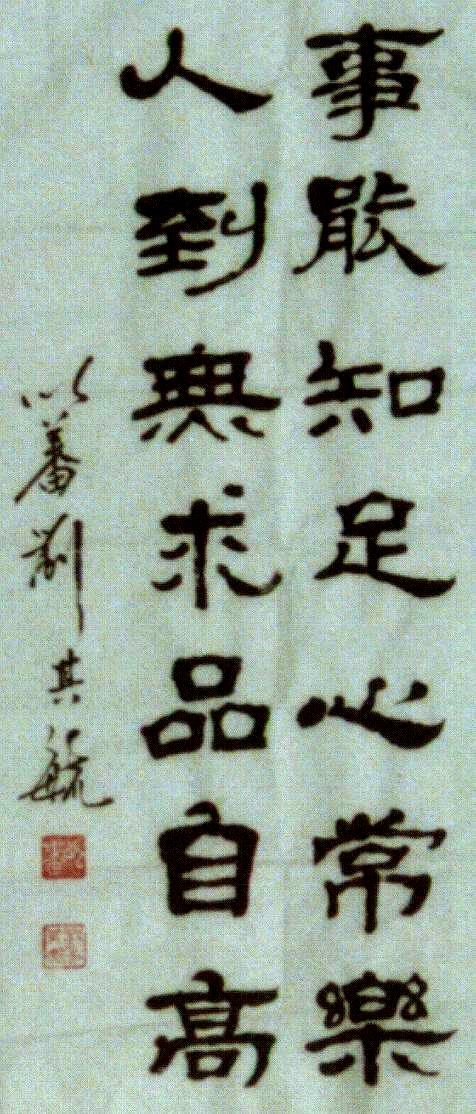 事能知足心常樂
人到無求品自高
以蕃劉其毓